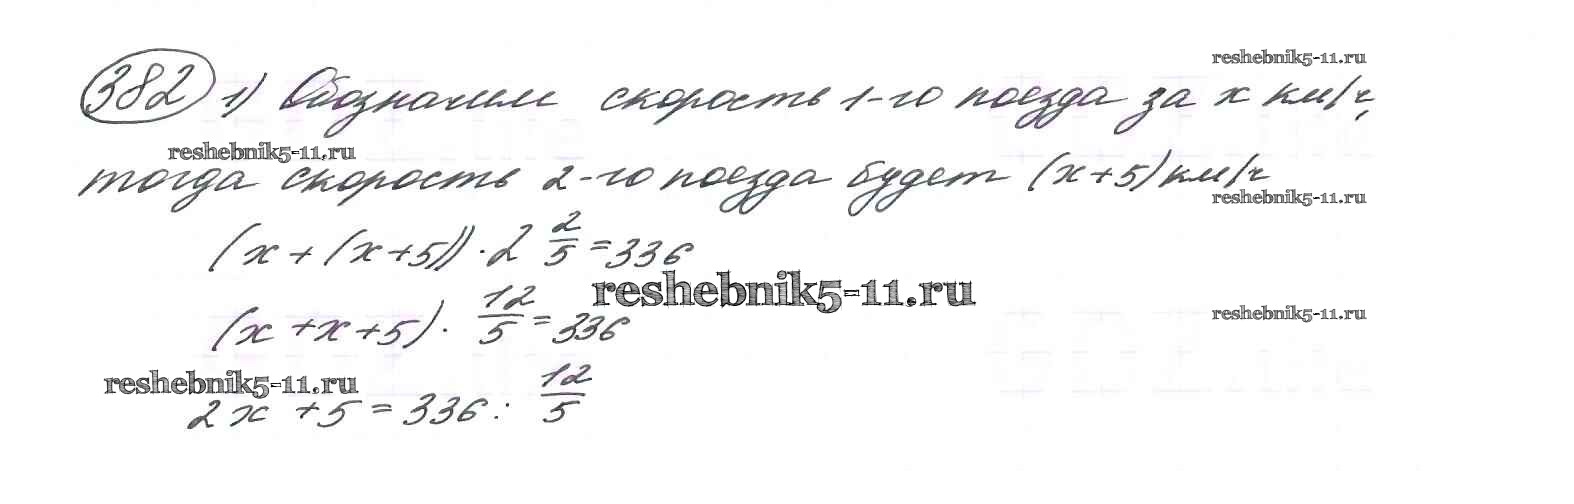 reshebnik5-11.ru
382 1) Обозначим скорость 1-го поезда за x км/ч,
reshebnik5-11.ru
тогда скорость 2-го поезда будет (x+5) км/ч
reshebnik5-11.ru
(x + (x+5)) · 2 2/5 = 336
reshebnik5-11.ru
(x + x + 5) · 12/5 = 336
reshebnik5-11.ru
reshebnik5-11.ru
2x + 5 = 336 : 12/5